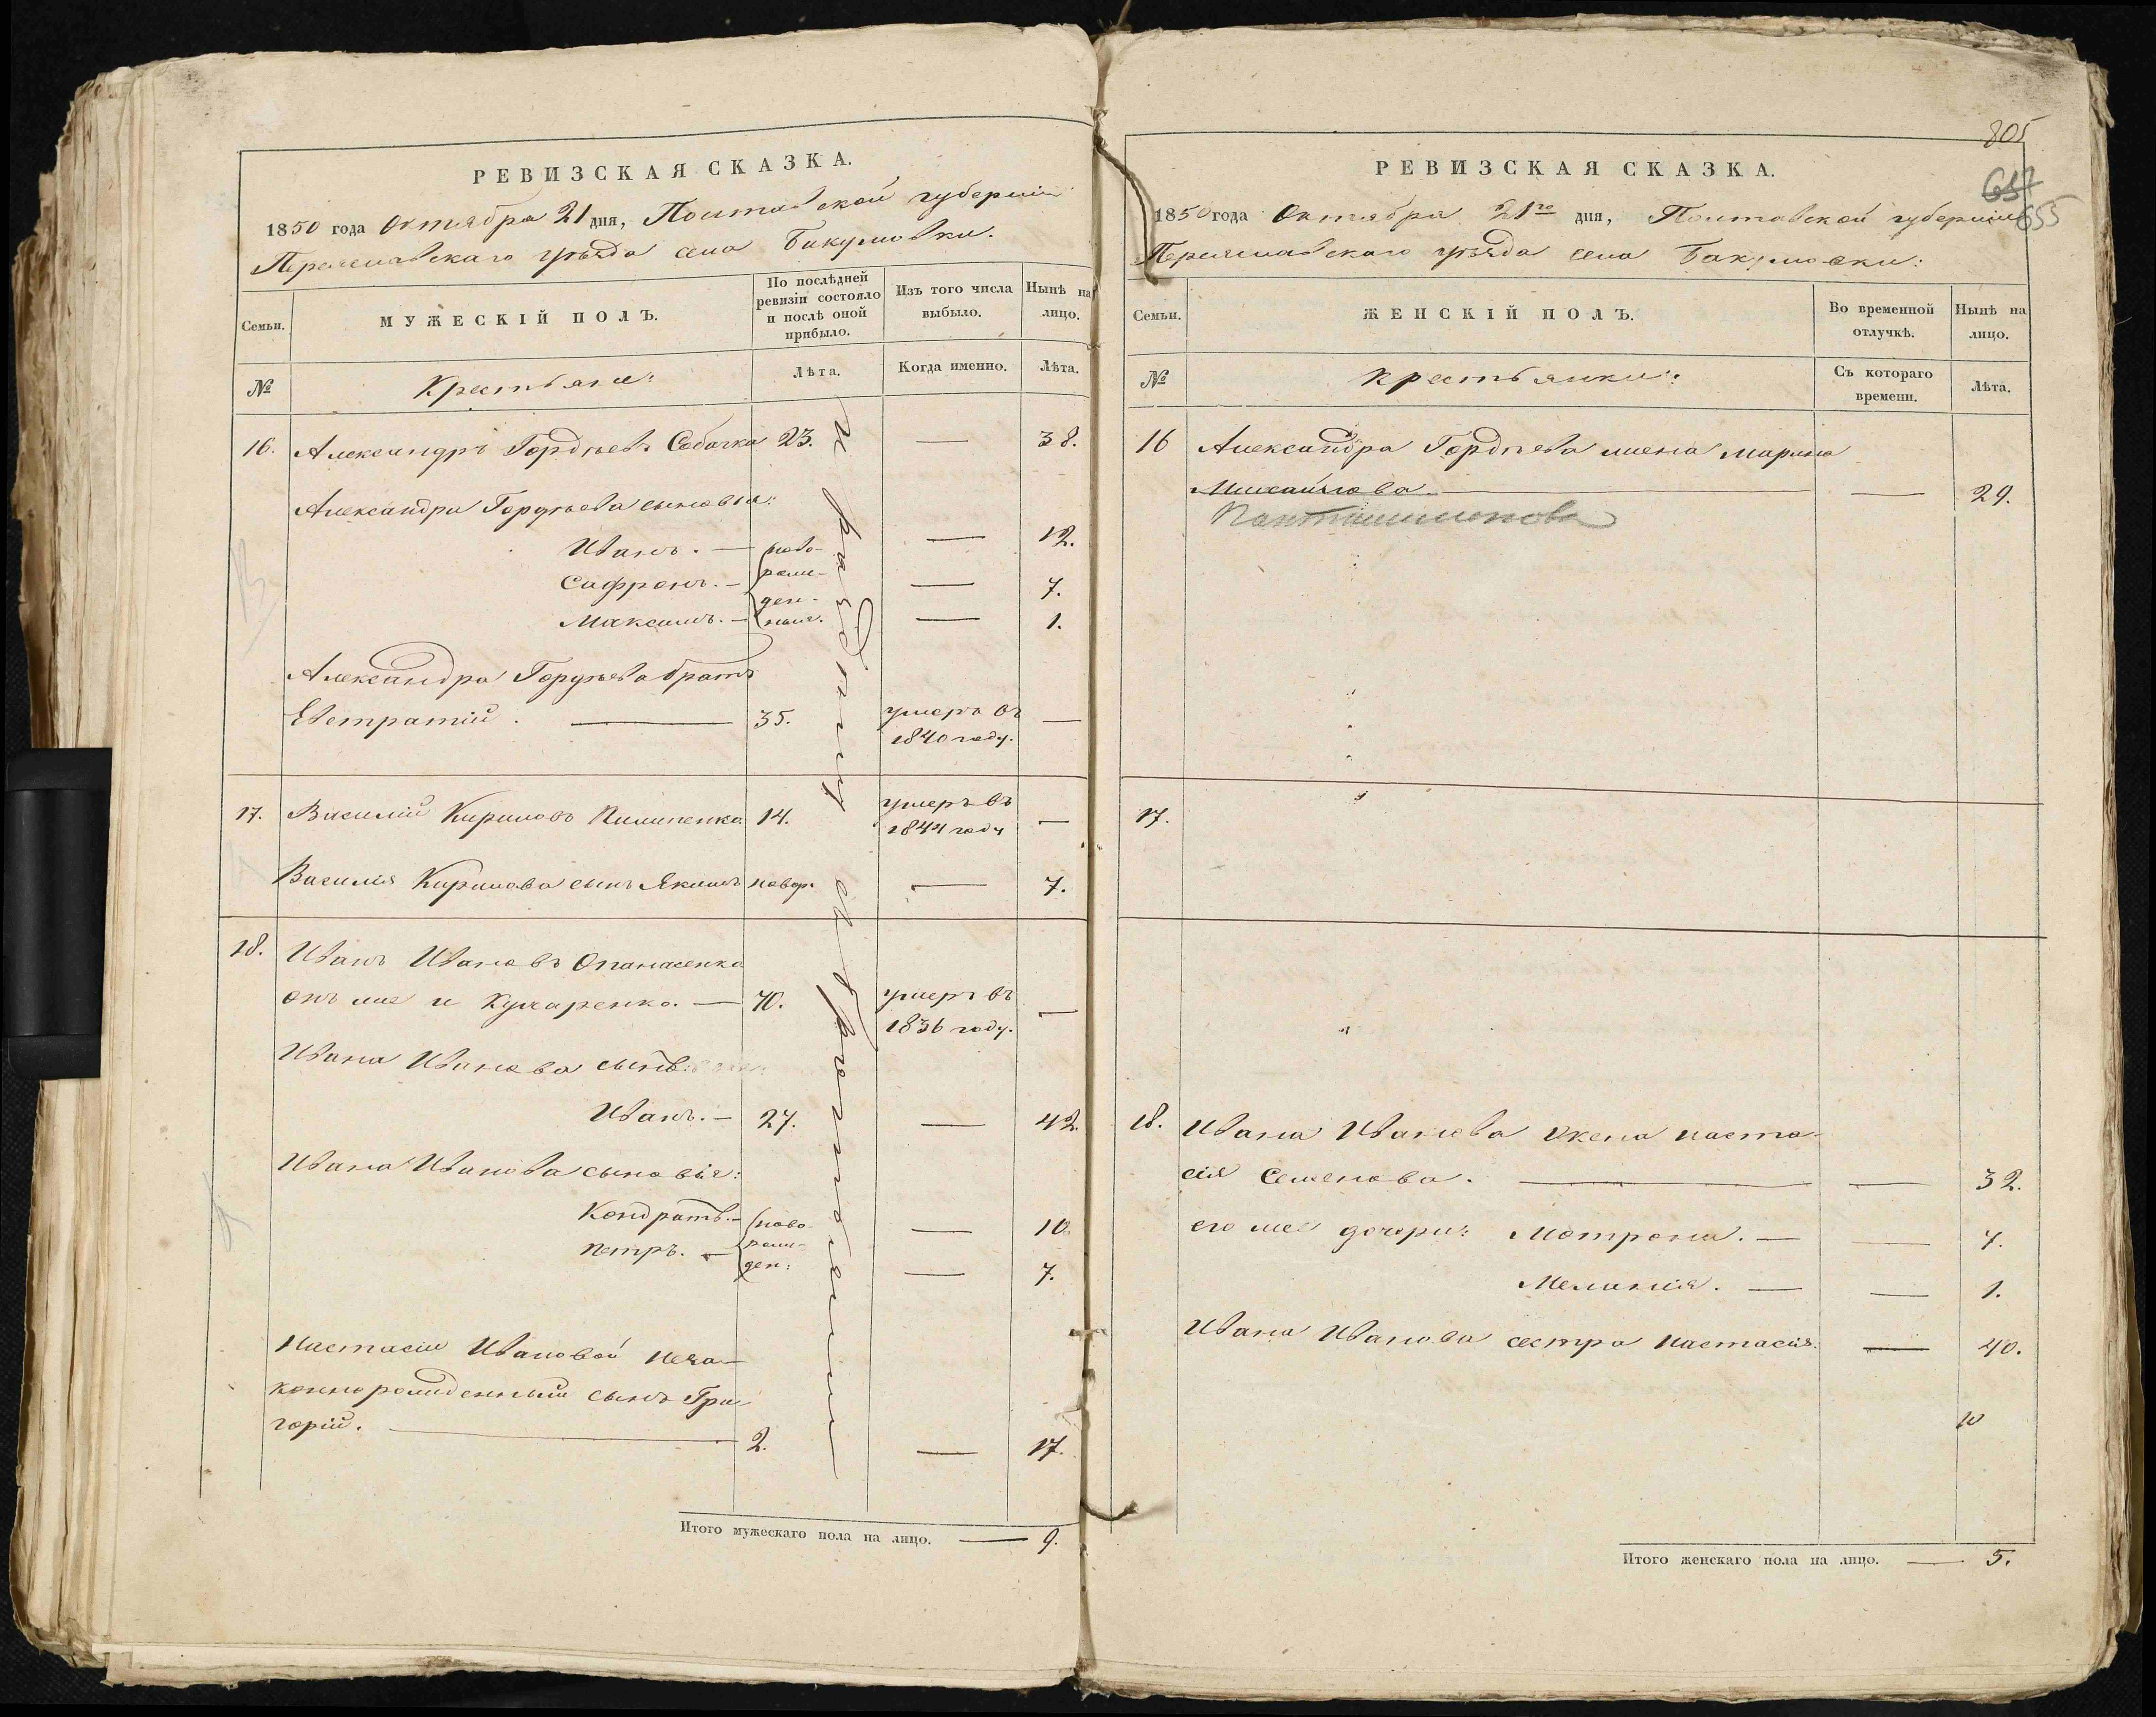 РЕВИЗСКАЯ СКАЗКА.
1850 года Октября 21 дня, Полтавской губернiи
Переяславскаго уѣзда села Бакумовки.
Семьи.
МУЖЕСКІЙ ПОЛЪ.
По послѣдней ревизіи состояло и послѣ оной прибыло.
Изъ того числа выбыло.
Нынѣ на лицо.
№
Крестьяне:
Лѣта.
Когда именно.
Лѣта.
16. Александръ Гордѣевъ Собачка 23. — 38.
Александра Гордѣева сыновья:
Иванъ. — ново- — 12.
Сафронъ. — рож- — 7.
ден-
Максимъ. — ные. — 1.
Александра Гордѣева братъ
Евстратій. — 35. умеръ въ —
1840 году.
17. Василій Кириловъ Пилипенко 14. умеръ въ —
1844 году
Василія Кирилова сынъ Якимъ новор. — 7.
18. Иванъ Ивановъ Опанасенко
онъ же и Кухаренко. — 70. умеръ въ —
1836 году.
Ивана Иванова сынъ:
Иванъ. — 27. — 42.
Ивана Иванова сыновья:
Кондратъ. — ново- — 10.
рож-
Петръ. — ден: — 7.
Настасіи Ивановой неза-
коннорожденный сынъ Гри-
горій. — 2. — 17.
Итого мужескаго пола на лицо. — 9.
805
655
РЕВИЗСКАЯ СКАЗКА.
1850 года Октября 21го дня, Полтавской губерніи
Переяславскаго уѣзда села Бакумовки:
Семьи.
ЖЕНСКІЙ ПОЛЪ.
Во временной отлучкѣ.
Нынѣ на лицо.
№
Крестьянки:
Съ котораго времени.
Лѣта.
16 Александра Гордѣева жена Марина
Михайлова. — — 29.
17.
18. Ивана Иванова жена Наста-
сія Семенова. — — 32.
его же дочери: Мотрона. — — 4.
Меланія. — — 1.
Ивана Иванова сестра Настасія. — 40.
10
Итого женскаго пола на лицо. — 5.